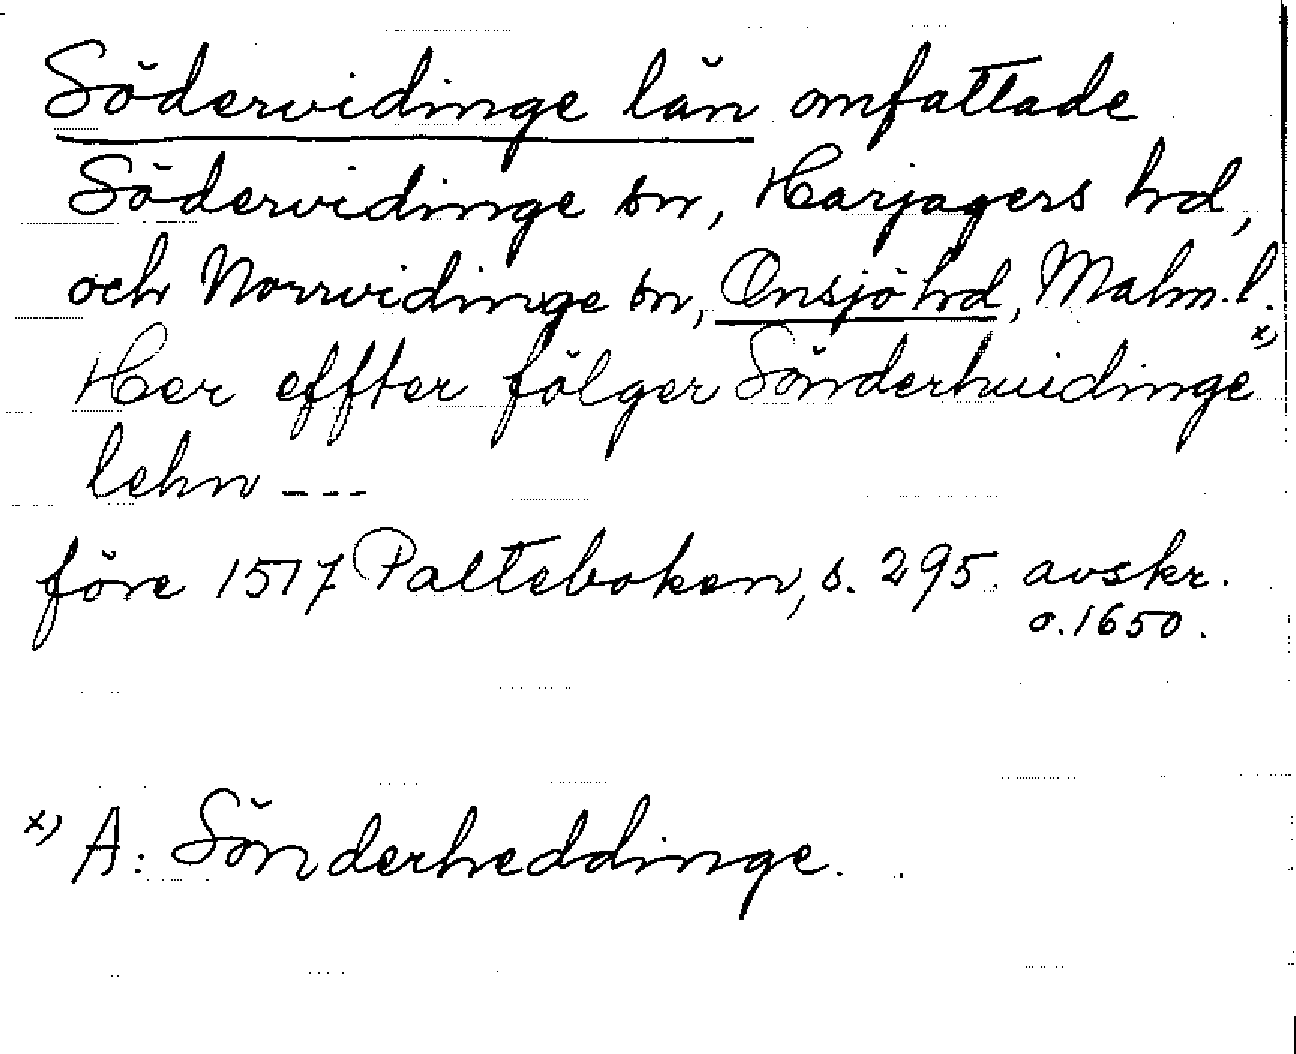 Södervidinge län omfattade
Södervidinge sn, Harjagers hrd,
och Norrvidinge sn, Onsjö hrd, Malm. l.
Her effter fölger Sönderhuidinge x)
lehn ---
före 1517 Palteboken, s. 295. avskr.
o. 1650.
x) A: Sönderheddinge.